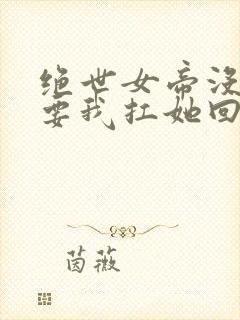 绝世女帝没
要我扛她回
茵薇